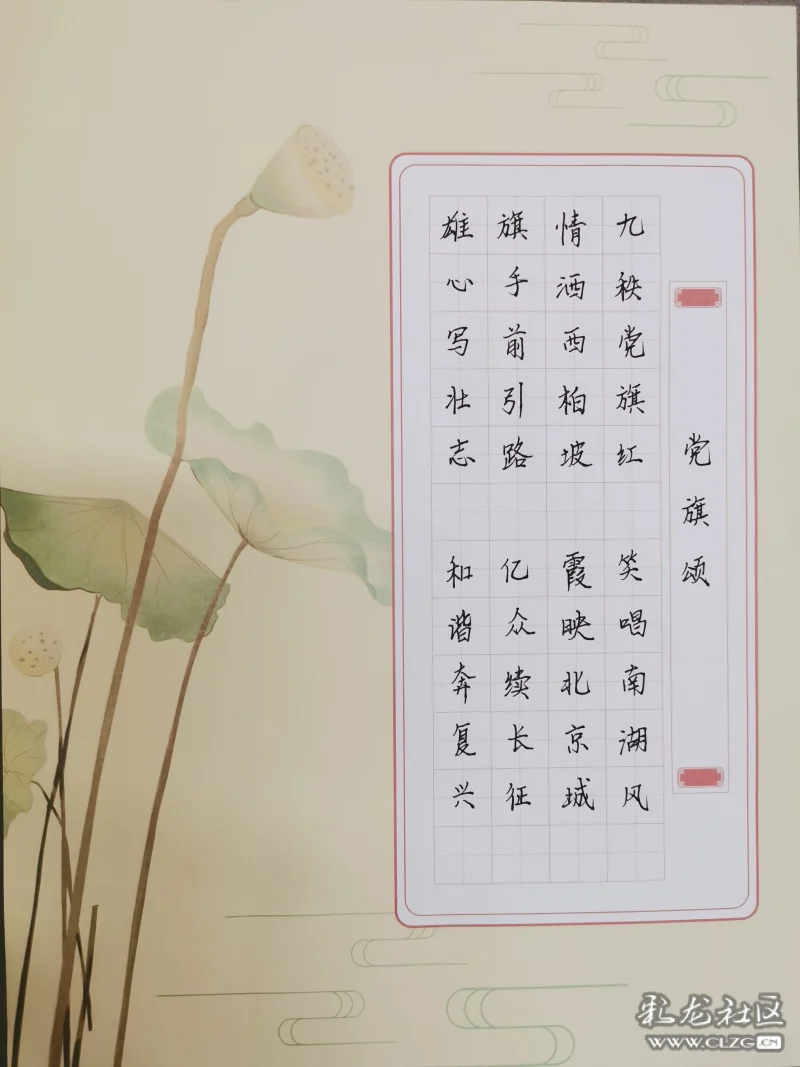 党旗颂
九秩党旗红 笑唱南湖风
情洒西柏坡 霞映北京城
旗手前引路 亿众续长征
雄心写壮志 和谐奔复兴
彩龙社区
www.CLZG.CN